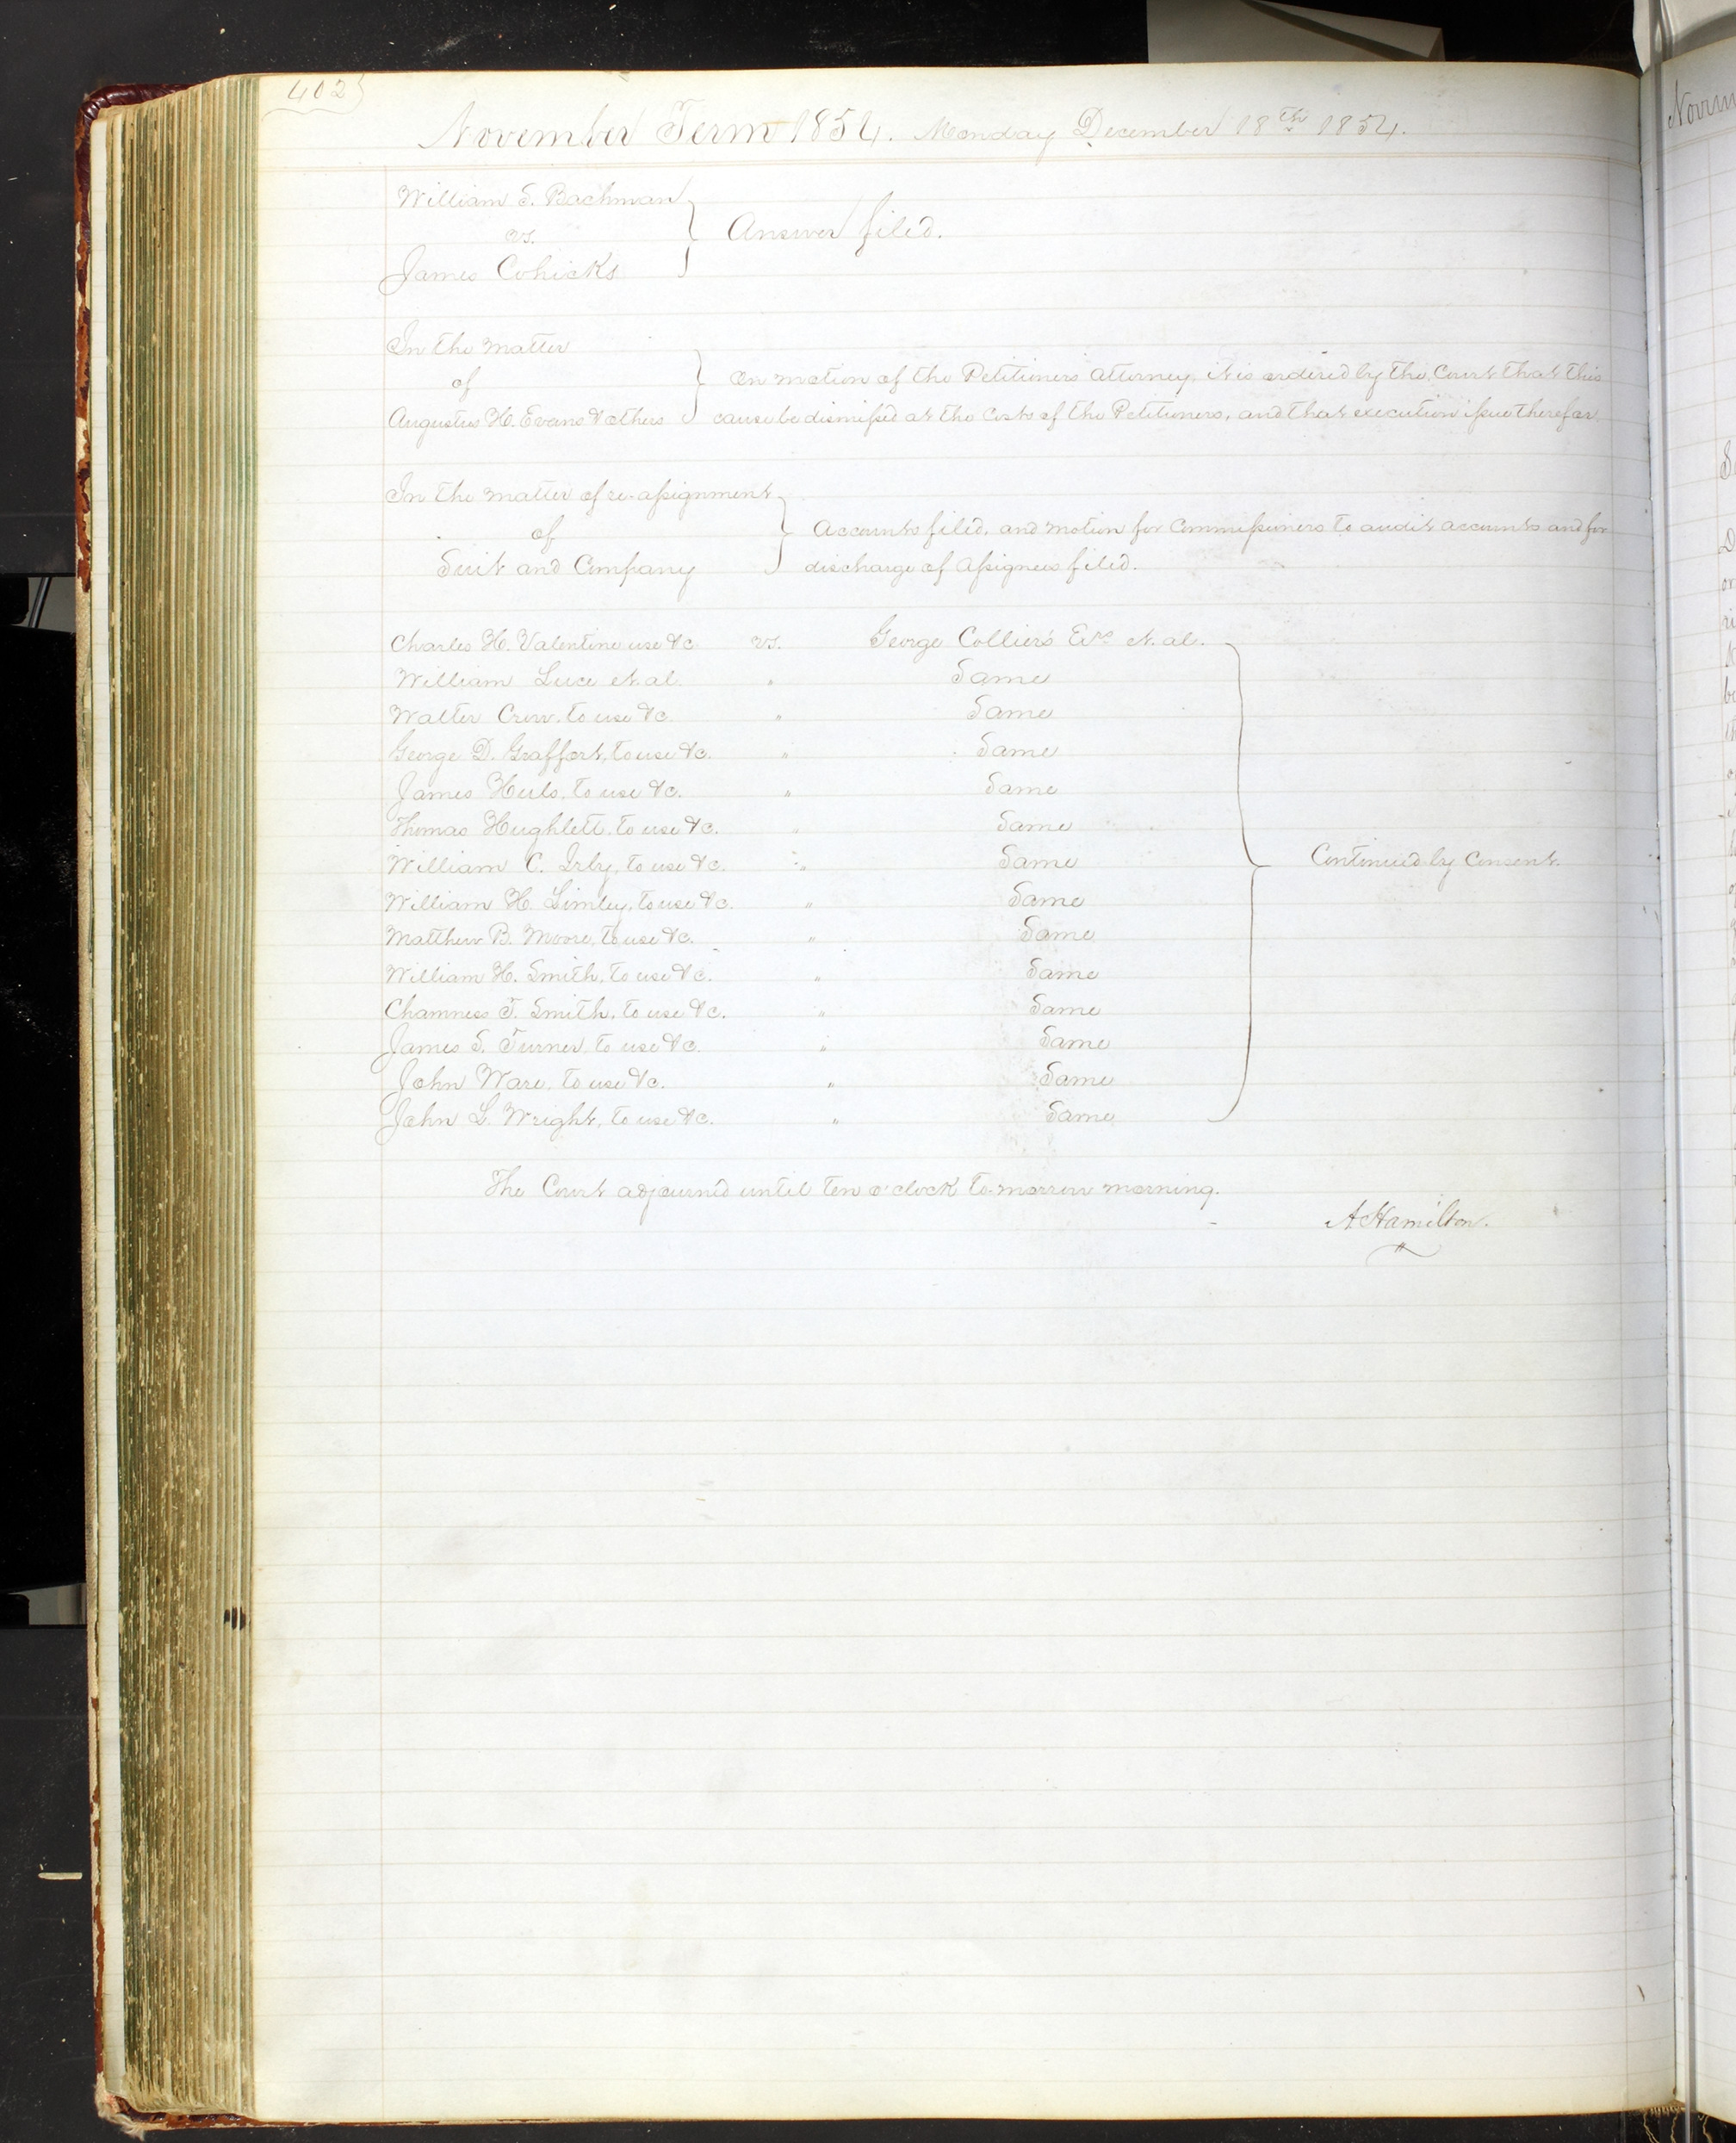 402
November Term 1854. Monday December 18th 1854.
William S. Bachman
vs.
James Cohicks
Answer filed.
In the matter
of
Augustus H. Evans & others
On motion of the Petitioners attorney, it is ordered by the Court that this
cause be dismissed at the costs of the Petitioners, and that execution issue therefor.
In the matter of re-assignment
of
Suit and Company
Accounts filed, and motion for Commissioners to audit accounts and for
discharge of Assignees filed.
Charles H. Valentine use &c. vs. George Collier's Exrs et. al.
William Luce et. al. " Same
Walter Crow, to use &c. " Same
George D. Graffort, to use &c. " Same
James to use &c. " Same
Thomas Hughlett, to use &c. " Same
William C. Irby, to use &c. " Same
William H. Limley, to use &c. " Same
Matthew B. Moore, to use &c. " Same
William H. Smith, to use &c. " Same
Chamness T. Smith, to use &c. " Same
James S. Turner, to use &c. " Same
John Ware, to use &c. " Same
John L. Wright, to use &c. " Same
Continued by Consent.
The Court adjourned until ten o'clock to-morrow morning.
A Hamilton.